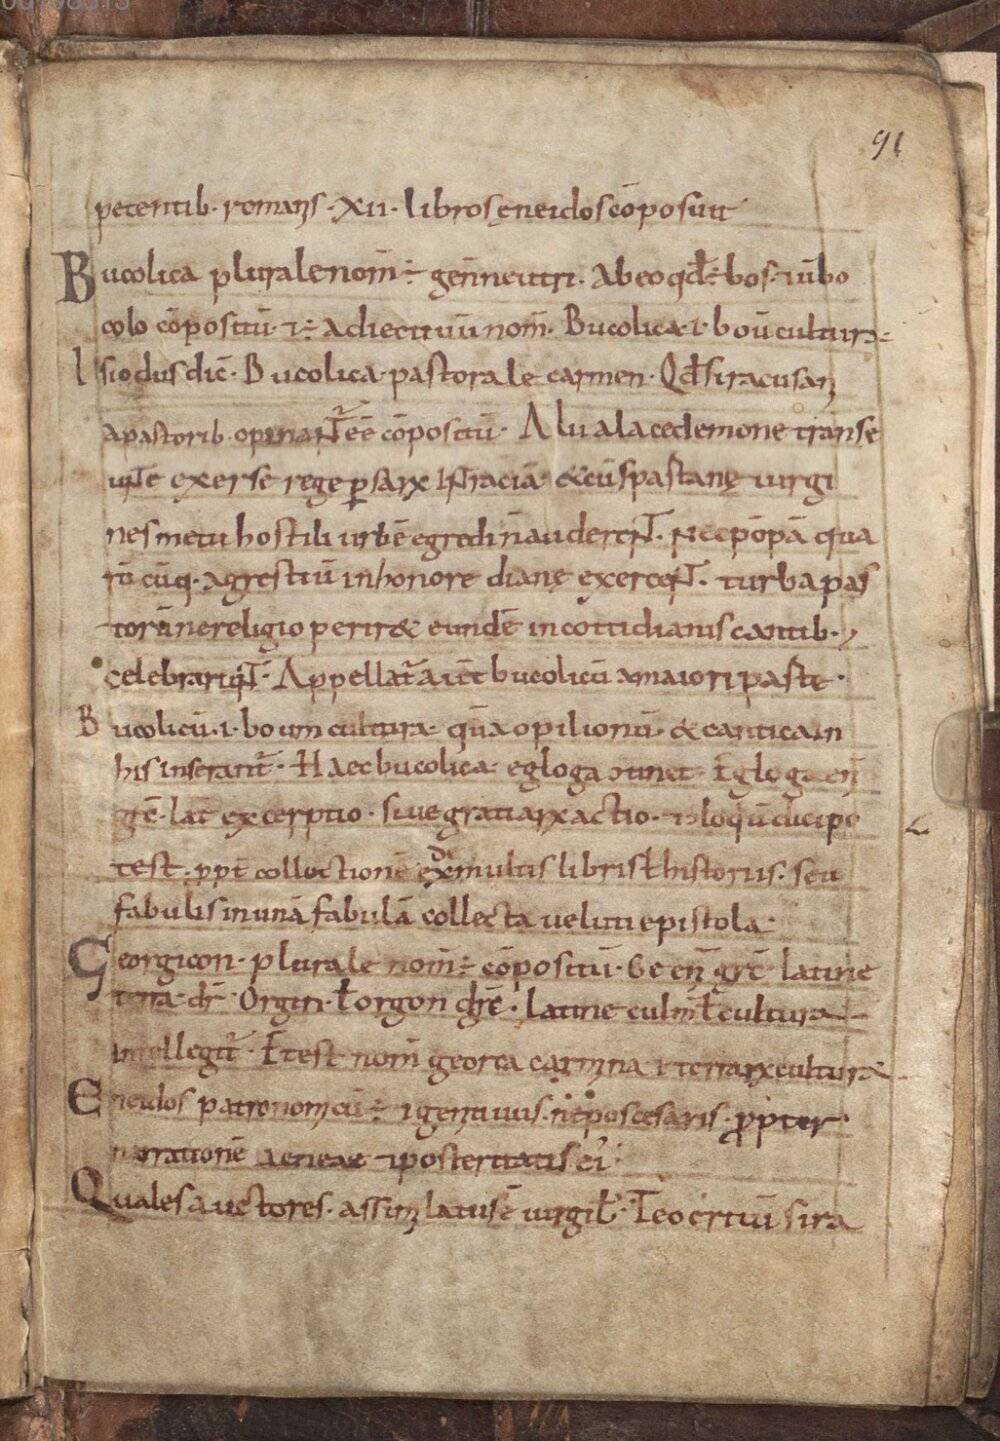 91
petentib· romanis · XII · libros ęneidos cōposuit
Bucolica plurale nom̄ ÷ gen̄ neutri. Ab eo qđ ÷ bos · ⁊ ūbo
colo cōpositū · ⁊ ÷ adiectiuū nom̄. Bucolica ·i· boū cultura
Isiodus dic̄ · Bucolica pastorale carmen · Qđ siracusis
a pastorib· opinant̄ eē cōpositū · Alii a lacedemone transe
unte exerse rege ꝑsarꝝ in traciā · &cū spastanę uirgi
nes metu hostili urbē egredi n̄ auderent. Nec pōpā qua
rū cūq· agrestiū in honore dianę exercent. turba pas
torū ne religio perir& eundē in cottidianis cantib·
celebrarunt · Appellat̄ aut̄ bucolicū a maiori parte ·
Bucolicū ·i· boum cultura · quā opilionū · & cantica in
his inserant̄ · Haec bucolica egloga Egloga en̄
grē · lat̄ excerptio · siue gratiarꝝ actio · ⁊ loquū dici po
test · ppt̄ collectionē ex multis libris ł historiis · seu
fabulis in unā fabulā collecta ueluti epistola ·
Georgicon · plurale nom̄ ÷ cōpositū · Ge en̄ grē latine
terra · dr̄ · Orgin · ł orgon grē · Latine culm̄ ł cultura
intellegit̄ · Et est nom̄ georca carmina ·i· terrarꝝ cultura
Eneidos patronomicū ÷ ·i· genitiuus · nepos cesaris · ꝓpter
narrationē aeneae ⁊ posteritatis ei'
Quales auctores · assimilatus ē uirgił · Teocritū sira